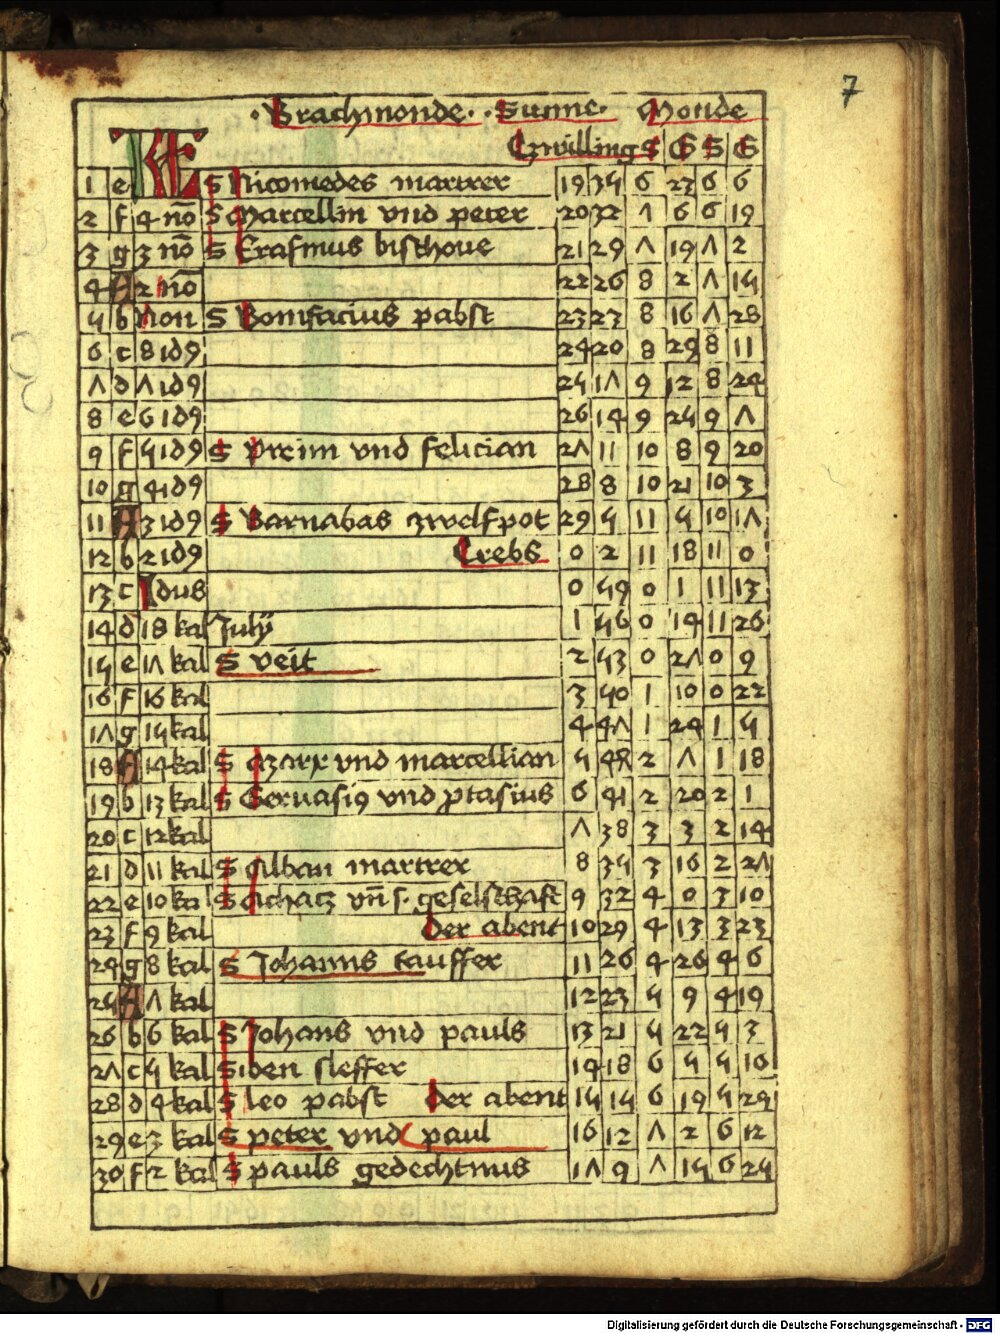 7
Brachmonde · Sunne · Monde
KL Czwilling S G S G
1 e S Nicomedes martrer 19 35 6 23 6 6
2 f 4 nō S Marcellin vnd peter 20 32 7 6 6 19
3 g 3 nō S Erasmus bischoue 21 29 7 19 7 2
4 A 2 nō 22 26 8 2 7 15
5 b Non S Bonifacius pabst 23 23 8 16 7 28
6 c 8 id9 24 20 8 29 8 11
7 d 7 id9 25 17 9 12 8 24
8 e 6 id9 26 14 9 25 9 7
9 f 5 id9 S Prim vnd felician 27 11 10 8 9 20
10 g 4 id9 28 8 10 21 10 3
11 A 3 id9 S Barnabas zwelfpot 29 5 11 5 10 17
12 b 2 id9 Crebs 0 2 11 18 11 0
13 c Idus 0 59 0 1 11 13
14 d 18 kal July 1 56 0 14 11 26
15 e 17 kal S veit 2 53 0 27 0 9
16 f 16 kal 3 50 1 10 0 22
17 g 15 kal 4 47 1 24 1 5
18 A 14 kal S Marx vnd marcellian 5 44 2 7 1 18
19 b 13 kal S Geruasi9 vnd ptasius 6 41 2 20 2 1
20 c 12 kal 7 38 3 3 2 14
21 d 11 kal S Alban martrer 8 35 3 16 2 27
22 e 10 kal S Achacz vn̄ s. geselschaft 9 32 4 0 3 10
23 f 9 kal Der abent 10 29 4 13 3 23
24 g 8 kal S Johanns tauffer 11 26 4 26 4 6
25 A 7 kal 12 23 5 9 4 19
26 b 6 kal S Johans vnd pauls 13 21 5 22 5 3
27 c 5 kal Siben sleffer 14 18 6 5 5 16
28 d 4 kal S leo pabst Der abent 15 15 6 19 5 29
29 e 3 kal S peter vnd paul 16 12 7 2 6 12
30 f 2 kal S pauls gedechtnus 17 9 7 15 6 25
Digitalisierung gefördert durch die Deutsche Forschungsgemeinschaft - DFG